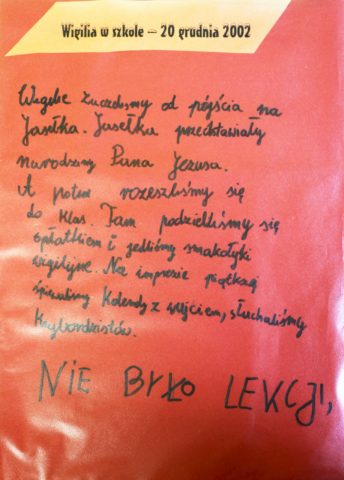 Wigilia w szkole – 20 grudnia 2002
Wigilie zaczeliśmy od pójścia na
Jasełka. Jasełka przedstawiały
narodziny Pana Jezusa.
A potem rozeszliśmy się
do klas. Tam podzieliliśmy się
opłatkiem i jedliśmy smakołyki
wigilijne. Na imprezie piątkzaj
śpiewaliśmy Kolendy z wujciem, słuchaliśmy
Keybordzistów.
NIE BYŁO LEKCJI,